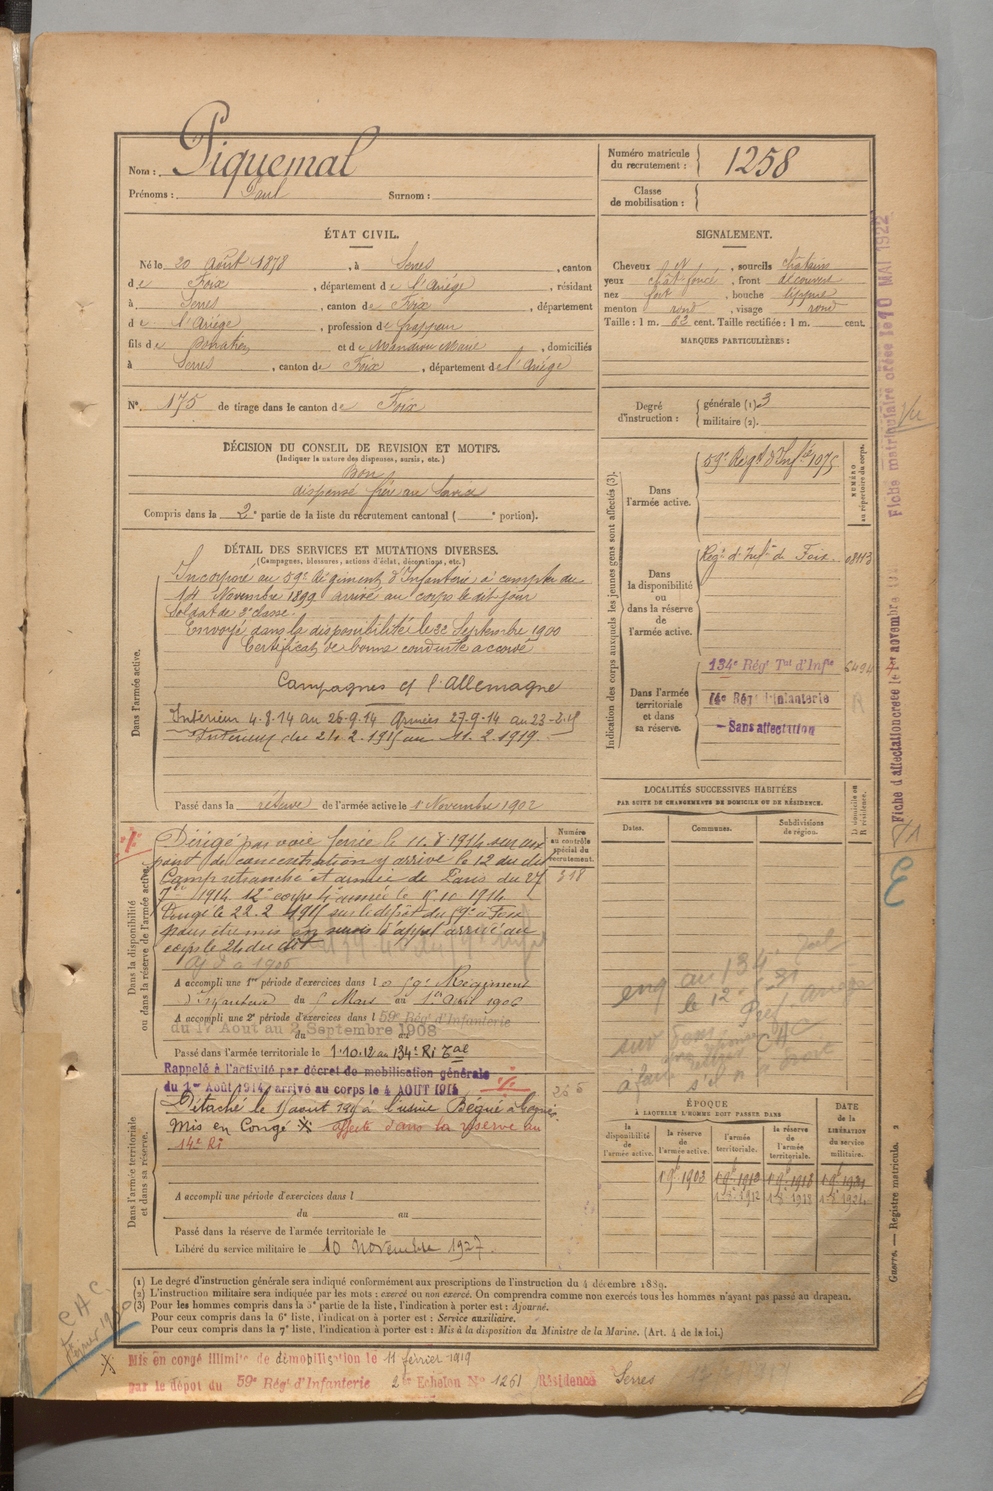 Nom : Piquemal
Prénoms : Paul Surnom :
Numéro matricule du recrutement : 1258
Classe de mobilisation :
ÉTAT CIVIL.
Né le 20 Août 1878, à Serres, canton
de Foix, département de l'Ariège, résidant
à Serres, canton de Foix, département
de l'Ariège, profession de
fils de et de Marie, domiciliés
à Serres, canton de Foix, département de l'Ariège
N° 175 de tirage dans le canton de Foix
SIGNALEMENT.
Cheveux N, sourcils châtains
yeux chât foncé, front découvert
nez fort, bouche lippue
menton rond, visage rond
Taille : 1 m. 62 cent. Taille rectifiée : 1 m. cent.
MARQUES PARTICULIÈRES :
Degré d'instruction : générale (1). 3
militaire (2).
DÉCISION DU CONSEIL DE REVISION ET MOTIFS.
(Indiquer la nature des dispenses, sursis, etc.)
Bon
dispensé frère au Service
Compris dans la 2e partie de la liste du recrutement cantonal ( e portion).
DÉTAIL DES SERVICES ET MUTATIONS DIVERSES.
(Campagnes, blessures, actions d'éclat, décorations, etc.)
Dans l'armée active.
Incorporé au 59e Régiment d'Infanterie à compter du
14 Novembre 1899 arrivé au corps le dit jour
Soldat de 2e classe.
Envoyé dans la disponibilité le 22 Septembre 1900
Certificat de bonne conduite accordé
Campagnes cf l'Allemagne
Intérieur 4-8-14 au 26-9-14 Armées 27-9-14 au 23-2-15
Intérieur du 24.2.1915 au 11.2.1919.
Passé dans la réserve de l'armée active le 1 Novembre 1902
Indication des corps auxquels les jeunes gens sont affectés (3).
NUMÉRO au répertoire du corps.
Dans l'armée active.
59e Régt d'Infie 1075
Dans la disponibilité ou dans la réserve de l'armée active.
Régt d'Infie de Foix
Dans l'armée territoriale et dans sa réserve.
134e Régt Tal d'Infie
14e Régt d'Infanterie
Sans affectation
LOCALITÉS SUCCESSIVES HABITÉES
PAR SUITE DE CHANGEMENTS DE DOMICILE OU DE RÉSIDENCE.
D domicile ou R résidence.
Dates. Communes. Subdivisions de région.
Numéro au contrôle spécial du recrutement.
318
Dans la disponibilité ou dans la réserve de l'armée active.
Dirigé par voie ferrée le 11.8.1914 sur un
point de concentration y arrive le 12 du dit
Camp retranché et armée de Paris du 27
7bre 1914 12e corps d'armée le 8.10.1914
le 22.2.1915 sur le dépôt du 59e à Foix
pour être mis en sursis d'appel arrivé au
corps le 24 du dit
A accompli une 1re période d'exercices dans le 59e Régiment
d'Infanterie du 5 Mars au 1er Avril 1906
A accompli une 2e période d'exercices dans l 59e Régt d'Infanterie
du 17 Août au 2 Septembre 1908
Passé dans l'armée territoriale le 1.10.12 au 134e Ri Tal
Dans l'armée territoriale et dans sa réserve.
Rappelé à l'activité par décret de mobilisation générale
du 1er Août 1914, arrivé au corps le 4 AOUT 1914
Détaché le 1 août 1917 à l'usine Bégué à
Mis en Congé affecté dans la réserve au
14e Ri
A accompli une période d'exercices dans l
du au
Passé dans la réserve de l'armée territoriale le
Libéré du service militaire le 10 novembre 1927.
eng au 134e
le 12-6-31
sur
à faire
s'il n'a droit
ÉPOQUE
À LAQUELLE L'HOMME DOIT PASSER DANS
DATE DE LA LIBÉRATION du service militaire.
la disponibilité de l'armée active. la réserve de l'armée active. l'armée territoriale. la réserve de l'armée territoriale.
1 9b 1903 1 9b 1913 1 9b 1918
1 8 1912 1 8 1918 1 8 1924
(1) Le degré d'instruction générale sera indiqué conformément aux prescriptions de l'instruction du 4 décembre 1889.
(2) L'instruction militaire sera indiquée par les mots : exercé ou non exercé. On comprendra comme non exercés tous les hommes n'ayant pas passé au drapeau.
(3) Pour les hommes compris dans la 5e partie de la liste, l'indication à porter est : Ajourné.
Pour ceux compris dans la 6e liste, l'indication à porter est : Service auxiliaire.
Pour ceux compris dans la 7e liste, l'indication à porter est : Mis à la disposition du Ministre de la Marine. (Art. 4 de la loi.)
Mis en congé illimité de démobilisation le 11 février 1919
par le dépôt du 59e Régt d'Infanterie 2e Echelon N° 1261 Résidence Serres
Fiche matriculaire créée le 10 MAI 1922
Fiche d'affectation créée le 1er novembre
Guerre. — Registre matricule. 2
C H C